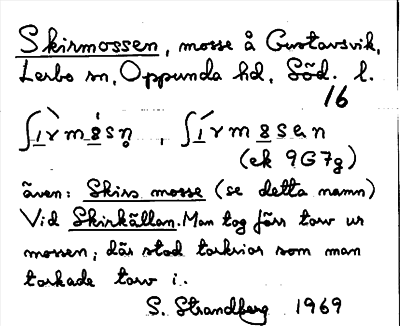 Skirmossen, mosse å Gustavsvik,
Lerbo sn, Oppunda hd, Söd. l.
16
ʃı̀rmósn̥ , ʃı́rmosen
(ek 9G7g)
även: Skirs mosse (se detta namn)
Vid Skirkällan. Man tog förr torv ur
mossen; där stod torkrior som man
torkade torv i.
S. Strandberg 1969